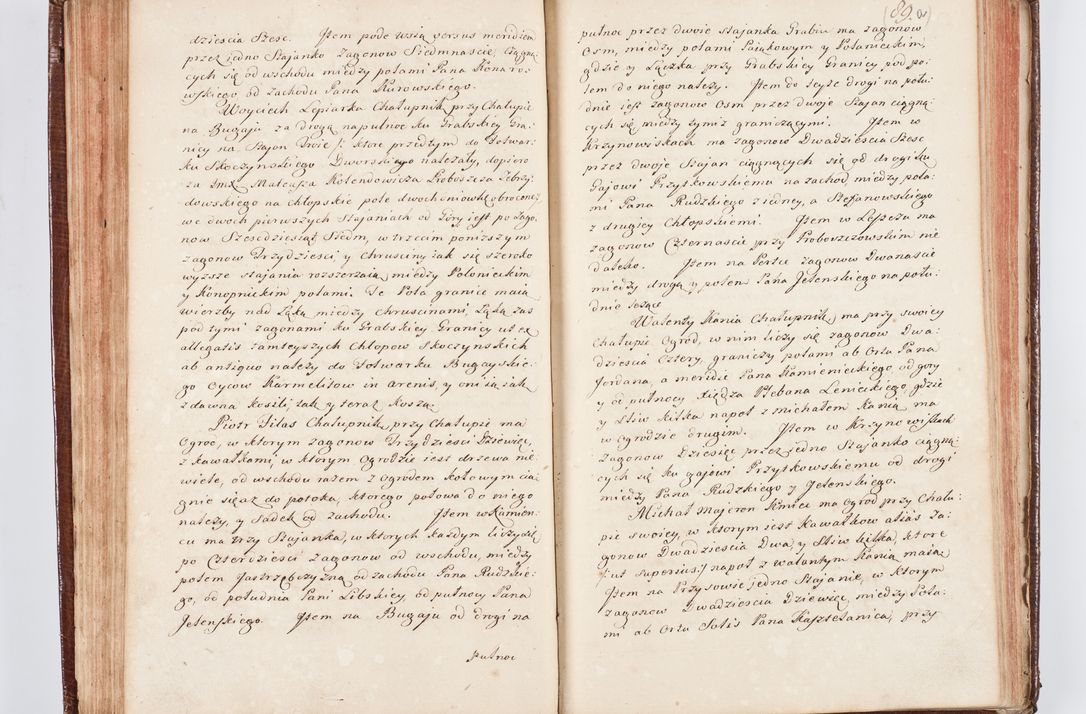 dziescia Szesc. Jtem pode wsią versus meridiem
przez jedno Stajanko Zagonow Siedmnascie, ciągną
cych się od wschodu między polami Pana Konaro:
wskiego od zachodu Pana Kurowskiego.
Woyciech Lipiarka Chałupnik przy Chałupie
na Bugaju za drogą na pułnoc ku Grabskiey Gra:
nicy na Stajon Troie /: ktore przedtym do Folwar:
ku Skoczynskiego Dworskiego należały, dopiero
za Jmx Mateusza Kolendowicza Proboszcza Zebrzy
dowskiego na chłopskie pole dwoch dniowkę obrocone,/
we dwoch pierwszych Stajaniach od Góry iest po Zago:
now Szescdziesiąt Siedm, w trzecim ponizszym
zagonow Trzydziesci, y chrusciny iak się szeroko
wyzsze stajania rozszerzaią, między Polonieckim
y Konopnickim polami. Te Pola granice maią
wierzby nad Łąką między chruscinami, Łąka zas
pod tymi zagonami ku Grabskiey Granicy ut ex
allegatis tamteyszych Chłopow Skoczynskich
ab antiquo nalezy do Folwarku Bugayskie:
go Oycow Karmelitow in arenis, y oni ią iak
zdawna kosili, tak y teraz koszą.
Piotr Filas Chałupnik, przy Chałupie ma
Ogrod, w ktorym zagonow Trzydziesci Dziewięc,
z kawałkami, w ktorym Ogrodzie iest drzewa nie
wiele, od wschodu razem z Ogrodem kołowym cią:
gnie się aż do potoka, ktorego połowa do niego
nalezy, y Sadek od zachodu. Jtem w Kamien:
cu ma trzy Stajanka, w ktorych kazdym liczy się
po Czterdziesci zagonow od wschodu, między
polem Jastrzębczyzną, od zachodu Pana Rudzkie:
go, od południa Pani Libskiey od pułnocy Pana
Jelenskiego. Jtem na Bugaju od drogi na
pułnoc
(89.a)
pułnoc przez dwoie Stajanka Grabiu ma zagonow
Osm, między polami Paiąkowym y Polanieckim,
gdzie y Łączka przy Grabskiey Granicy pod po:
lem do niego nalezy. Jtem do teyże drogi na połu:
dnie iest zagonow Osm przez dwoje Stajan ciągną:
cych się między tymiż graniczącymi. Jtem w
Krzynowiskach ma zagonow Dwadziescia Szesc
przez dwoje Stajan ciągnących się od drogi ku
Gajowi Przytkowskiemu na zachod, między pola:
mi Pana Rudzkiego z iedney, a Stefanowskiego
z drugiey Chłopskiemi. Jtem w Leszczu ma
zagonow Czternascie przy Proboszczowskim nie
daleko. Jtem na Pertce zagonow Dwanascie
między drogą y polem Pana Jelenskiego na połu:
dnie leżące
Walenty Kania Chałupnik, ma przy swoiey
Chałupie Ogrod, w nim liczy się zagonow Dwa:
dziescia Cztery, graniczy polami ab Ortu Pana
Jordana, a meridie Pana Kamienieckiego, od gory
y od pułnocy Xiędza Plebana Lenickiego, gdzie
y Sliw kilka napoł z michałem Kanią ma
w Ogrodzie drugim. Jtem w Krzynowiskach
zagonow Dziesięc przez jedno Stajanko ciągną:
cych się ku gajowi Przytkowskiemu od drogi
między Pana Rudzkiego y Jelenskiego.
Michał Majcron Kmiec ma Ogrod przy Chału:
pie swoiey, w ktorym iest Kawałkow alias Za:
gonow Dwadziescia Dwa, y Sliw kilka, ktore
/:ut superius:/ napoł z walantym Kanią maią
Jtem na Przysowie jedno Stajanie, w ktorym
zagonow Dwadziescia Dziewięc, między Pola:
mi ab Ortu Solis Pana Kasztelanica, przy